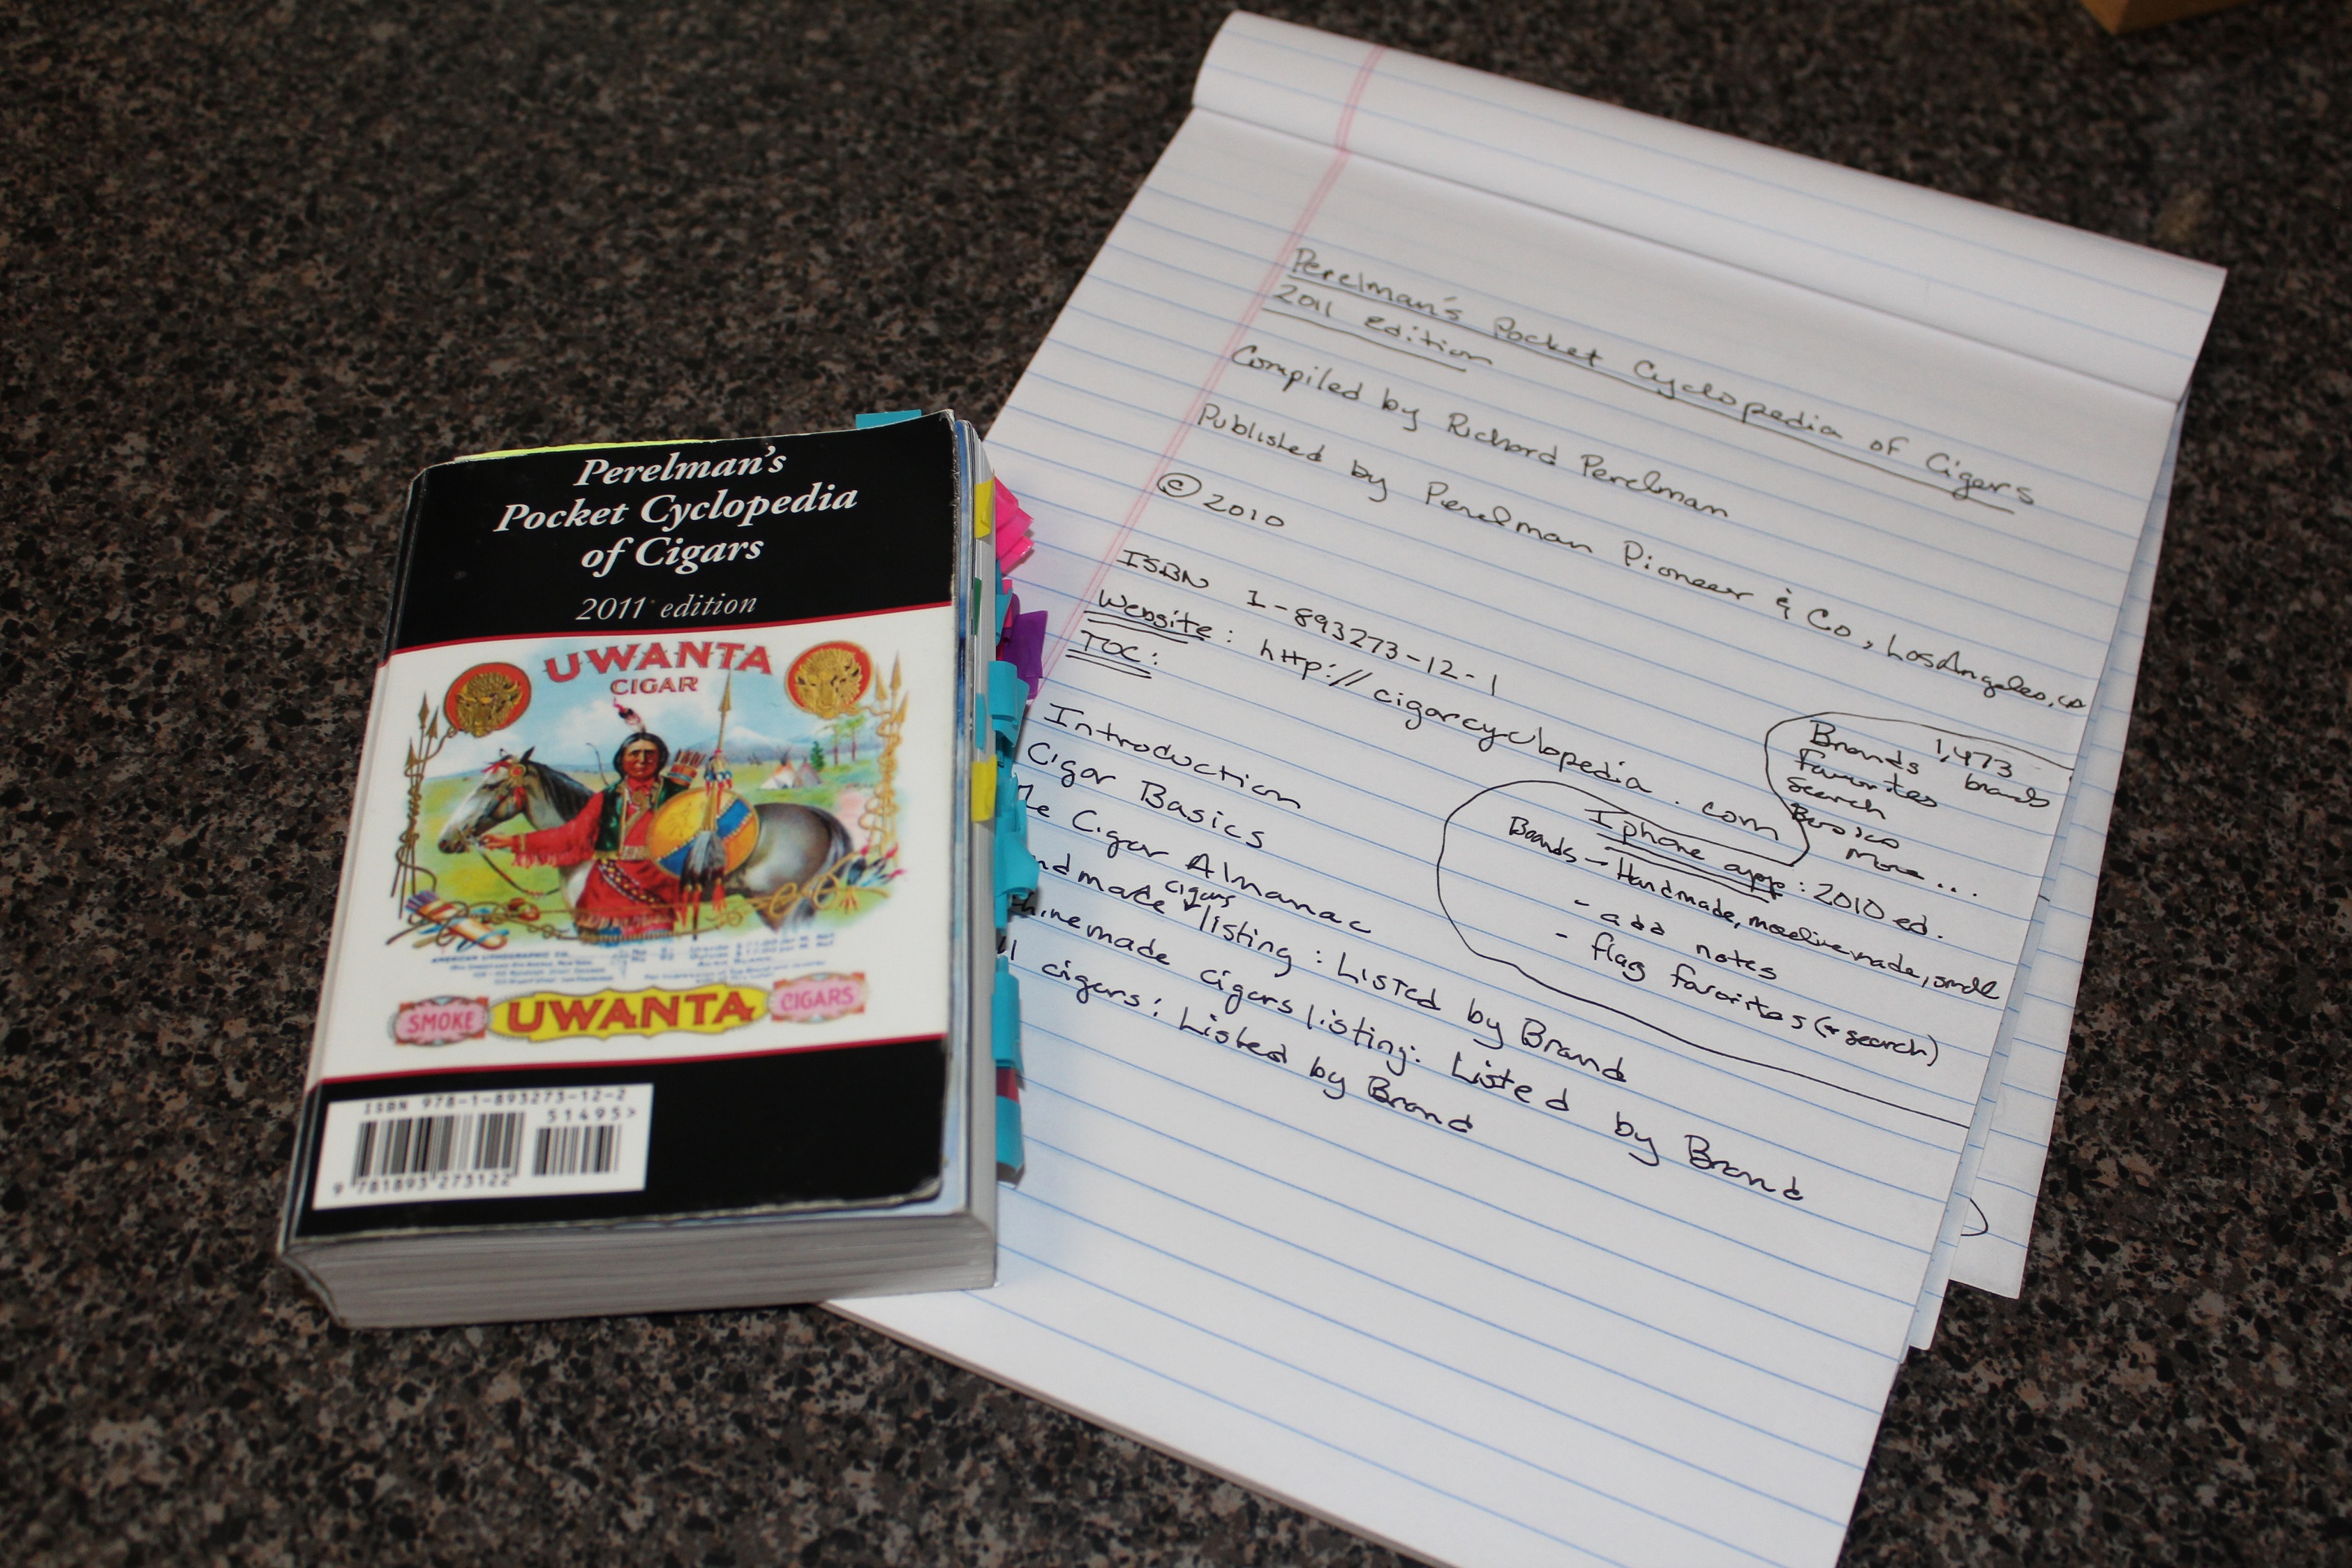 Perelman's
Pocket Cyclopedia
of Cigars
2011 edition
UWANTA
CIGAR
AMERICAN LITHOGRAPHIC CO.
SMOKE
UWANTA
CIGARS
ISBN 978-1-893273-12-2
51495>
9 781893 273122
Perelman's Pocket Cyclopedia of Cigars
2011 edition
Compiled by Richard Perelman
Published by Perelman Pioneer & Co, Los Angeles, CA
© 2010
ISBN 1-893273-12-1
Website: http://cigarcyclopedia.com
TOC:
Introduction
Cigar Basics
The Cigar Almanac
ndmade cigars listing: Listed by Brand
hinemade cigars listing: Listed by Brand
ll cigars: Listed by Brand
Brands 1,473 brands
Favorites
Search
Basics
More...
Iphone app: 2010 ed.
Brands - Handmade, machinemade, small
- add notes
- flag favorites (+ search)